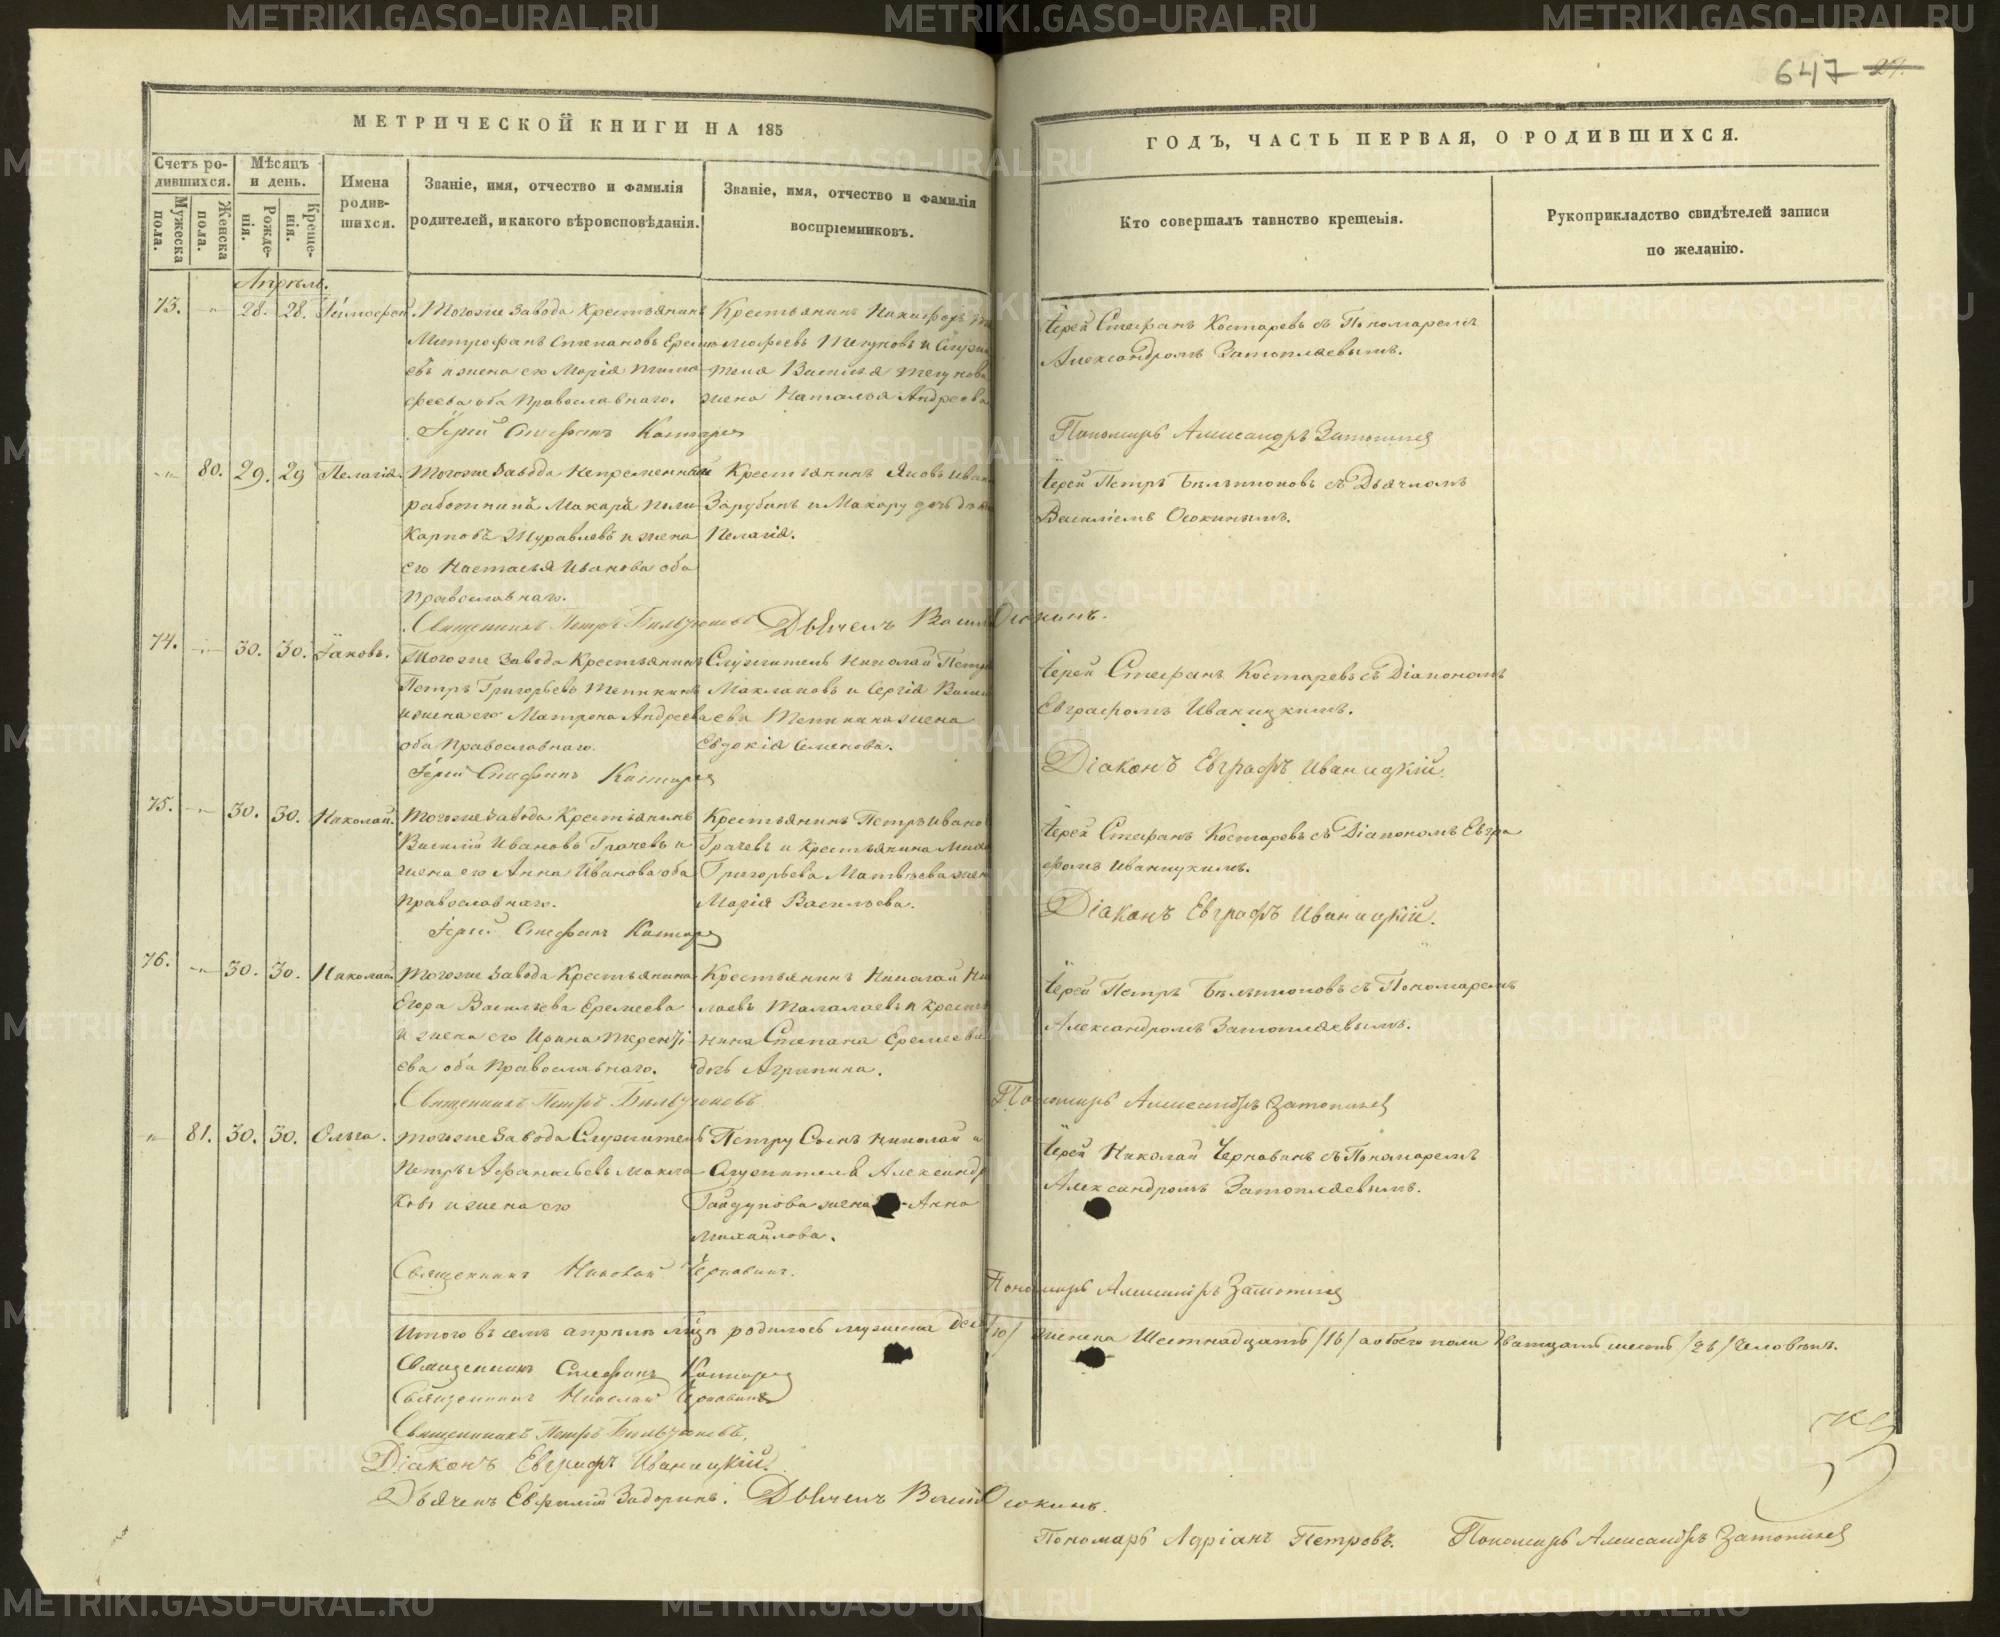 647 27.
МЕТРИЧЕСКОЙ КНИГИ НА 185
ГОДЪ, ЧАСТЬ ПЕРВАЯ, О РОДИВШИХСЯ.
Счетъ ро-
дившихся.
Мужеска
пола.
Женска
пола.
Мѣсяцъ
и день.
Рожде-
нія.
Креще-
нія.
Имена
родив-
шихся.
Званіе, имя, отчество и фамилія
родителей, и какого вѣроисповѣданія.
Званіе, имя, отчество и фамилія
воспріемниковъ.
Кто совершалъ таинство крещенія.
Рукоприкладство свидѣтелей записи
по желанію.
Апрѣль.
73. 28. 28. Тимофей
Тогоже завода Крестьянинъ
Митрофанъ Степановъ Ереме-
евъ и жена его Марія Тимо-
феева оба Православнаго.
Крестьянинъ Никифоръ
и Служи
теля Василья
жена Наталья Андреева
Іерей Стефанъ Костаревъ съ Пономаремъ
Александромъ Затопляевымъ.
Іерей Стефанъ Костарев
Пономарь Александръ Затопляев
80. 29. 29 Пелагія.
Тогоже завода Непременный
работникъ Макаръ Поли-
карповъ Журавлевъ и жена
его Настасья Иванова оба
Православнаго.
Крестьянинъ Яковъ Иван
Зарубинъ и Макару дочь дѣв
Пелагія.
Іерей Петръ Бѣльтюковъ съ Дьячкомъ
Василіемъ Осокинымъ.
Священникъ Петръ Бѣльтюковъ Дьячекъ Васил Осокинъ.
74. 30. 30. Іаковъ.
Тогоже завода Крестьянинъ
Петръ Григорьевъ Тепикинъ
и жена его Матрена Андреева
оба Православнаго.
Служитель Николай Петр
Маклаковъ и Сергія Васил
ева Тепикина жена
Евдокія Семенова.
Іерей Стефанъ Костаревъ съ Діакономъ
Евграфомъ Иваницкимъ.
Іерей Стефанъ Костарев
Діаконъ Евграфъ Иваницкій.
75. 30. 30. Николай.
Тогоже завода Крестьянинъ
Василій Ивановъ Грачевъ и
жена его Анна Иванова оба
Православнаго.
Крестьянинъ Петръ Ивано
Грачевъ и крестьянина
Григорьева Матвѣева жен
Марія Васильева.
Іерей Стефанъ Костаревъ съ Діакономъ Евгра
фомъ Иваницкимъ.
Іерей Стефанъ Костарев
Діаконъ Евграфъ Иваницкій.
76. 30. 30. Николай
Тогоже завода Крестьянина
Егора Васильева Еремеева
и жена его Ирина Терентi-
ева оба Православнаго.
Крестьянинъ Николай Ни
лаевъ Талалаевъ и крестья
нина Степана Еремеева
дочь Агрипина.
Іерей Петръ Бѣльтюковъ съ Пономаремъ
Александромъ Затопляевымъ.
Священникъ Петръ Бѣльтюковъ
Пономарь Александръ Затопляев
81. 30. 30. Ольга.
Тогоже завода Служитель
Петръ Афанасьевъ Макла-
ковъ и жена его
Петру Сынъ Николай и
Служителя Александр
Гайдукова жена Анна
Михайлова.
Іерей Николай Чернавинъ съ Пономаремъ
Александромъ Затопляевымъ.
Священникъ Николай Чернавинъ.
Пономарь Александръ Затопляев
Итого въ семъ апрѣлѣ мѣцѣ родилось мужеска дес /10/ женска Шестнадцать /16/ а обоего пола Дватцать шесть /26/ человѣкъ.
Священникъ Стефанъ Костарев
Священникъ Николай Чернавинъ
Священникъ Петръ Бѣльтюковъ.
Діаконъ Евграфъ Иваницкій.
Дьячекъ Евфимій Задоринъ. Дьячекъ Васил Осокинъ.
Пономарь Адріанъ Петровъ. Пономарь Александръ Затопляев
METRIKI.GASO-URAL.RU